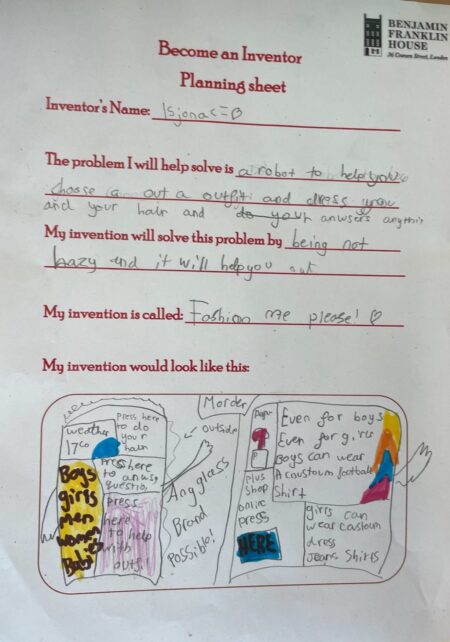 BENJAMIN
FRANKLIN
HOUSE
36 Craven Street, London
Become an Inventor
Planning sheet
Inventor's Name:
The problem I will help solve is a robot to help you
choose out a outfit and dress you
and your hair and do your anwsers anything
My invention will solve this problem by being not
lazy and it will help you out
My invention is called: Fashion me please! ♡
My invention would look like this:
weather
17C°
press here
to do
your
hair
press here
to anwsr
question
Boys
girls
men
women
Babies
press
here
to help
with
outfit
Morder
outside
Any glass
Brand
possible!
plus
shop
online
press
HERE
Even for boys
Even for girls
Boys can wear
A coustoum football
Shirt
girls can
wear coustoum
dress
Jeans Shirts